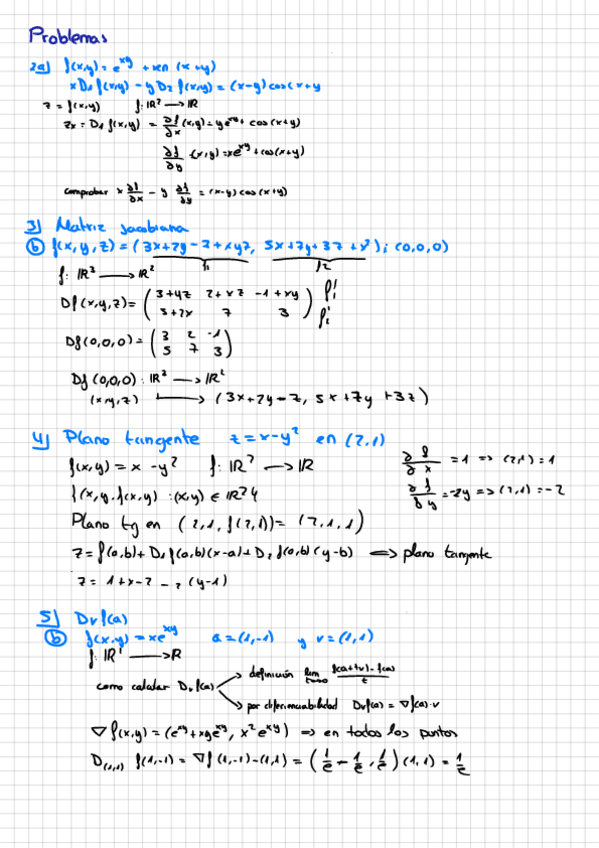 Problemas
2a) f(x,y) = e^xy + sen (x+y)
xD₁f(x,y) - yD₂f(x,y) = (x-y)cos(x+y
z = f(x,y)    f: IR² → IR
Zx = D₁ f(x,y) = ∂f/∂x (x,y) = ye^xy + cos(x+y)
∂f/∂y (x,y) = xe^xy + cos(x+y)
comprobar x ∂f/∂x - y ∂f/∂y = (x-y) cos(x+y)
3) Matriz jacobiana
(b) f(x,y,z) = (3x+2y-z+xyz, 5x+7y+3z+x²); (0,0,0)
f₁    f₂
f: IR³ → IR²
Df(x,y,z) = (3+yz  2+xz  -1+xy / 5+2x  7  3) f'₁ f'₂
Df(0,0,0) = (3  2  -1 / 5  7  3)
Df(0,0,0): IR³ → IR²
(x,y,z) ⟼ (3x+2y-z, 5x+7y+3z)
4) Plano tangente    z = x-y² en (2,1)
f(x,y) = x - y²    f: IR² → IR    ∂f/∂x = 1 => (2,1) = 1
{(x,y,f(x,y) : (x,y) ∈ IR²}    ∂f/∂y = -2y => (2,1) = -2
Plano tg en (2,1, f(2,1)) = (2,1,1)
z = f(a,b) + D₁f(a,b)(x-a) + D₂f(a,b)(y-b) <=> plano tangente
z = 1+x-2 - 2(y-1)
5) Dvf(a)
(b) f(x,y) = xe^xy    a = (1,-1)    y v = (1,1)
f: IR² → R
como calcular Dvf(a)
definición lim t→0 f(a+tv)-f(a)/t
por diferenciabilidad Dvf(a) = ∇f(a)·v
∇f(x,y) = (e^xy + xye^xy, x²e^xy) => en todos los puntos
D(1,1) f(1,-1) = ∇f(1,-1)-(1,1) = (1/e - 1/e, 1/e)(1,1) = 1/e